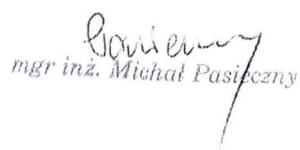 mgr inż. Michał Pasieczny